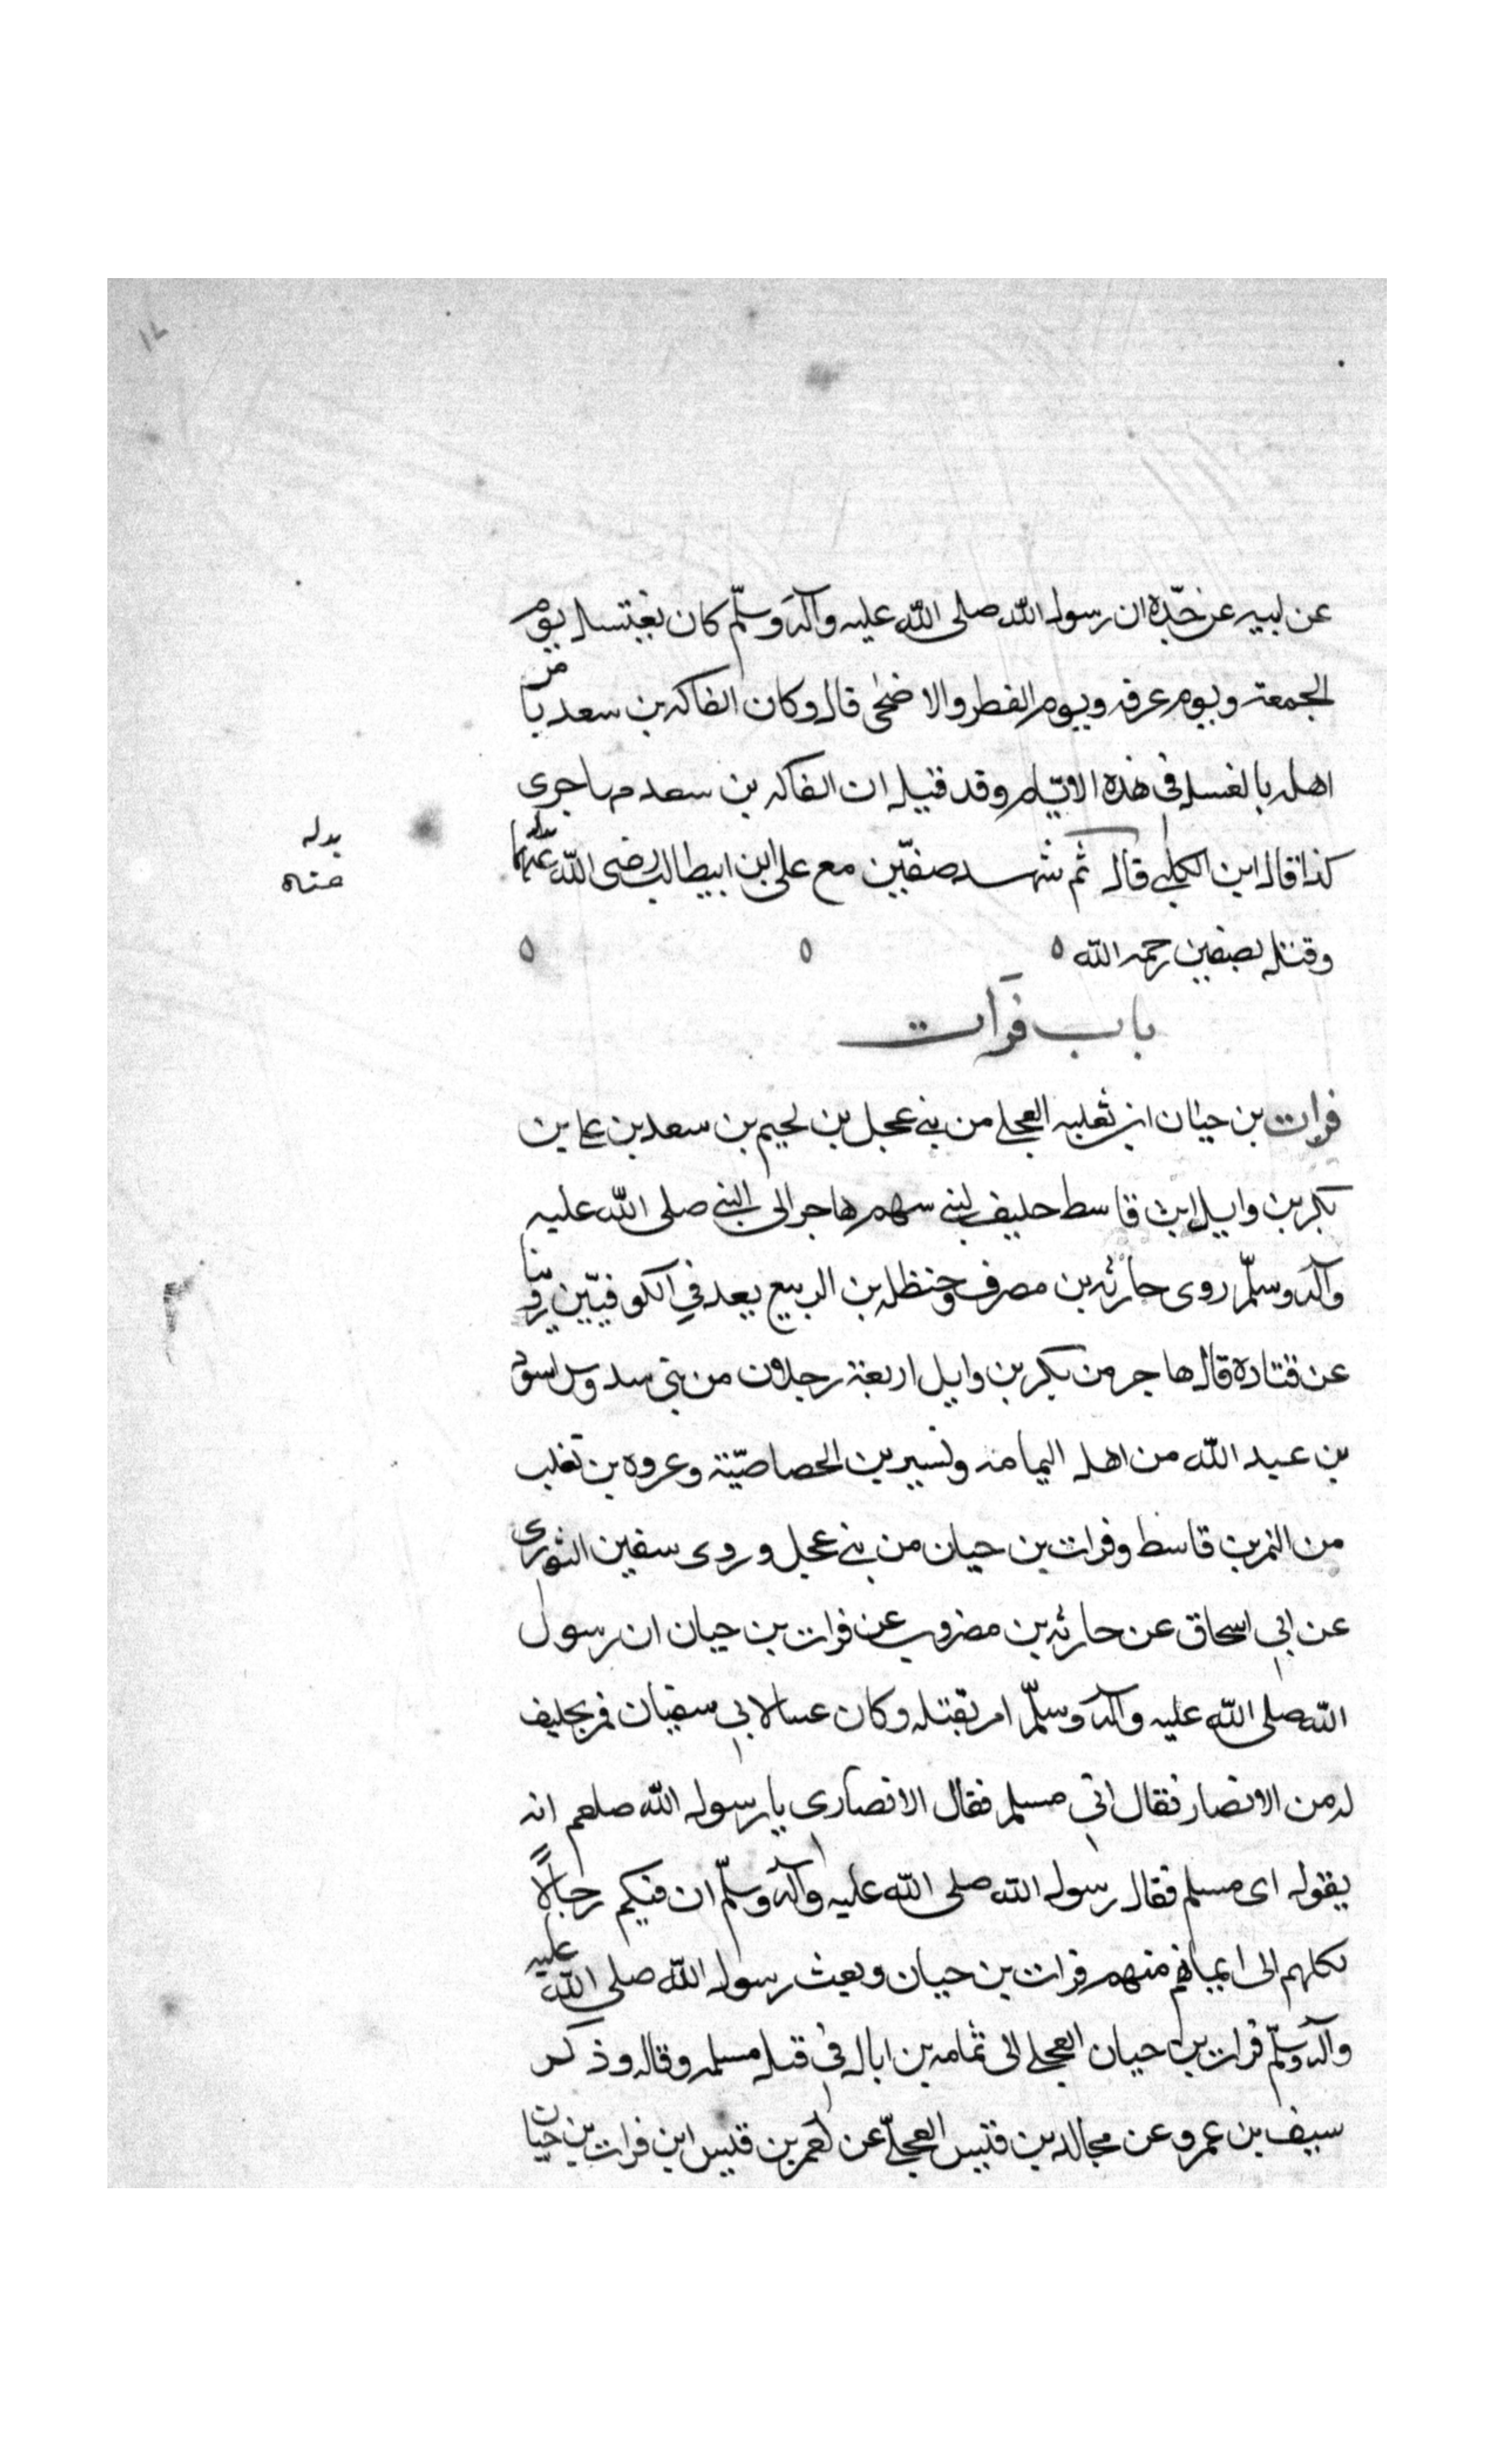 عن ابيه عن جدّه ان رسول الله صلى الله عليه وآله وسلّم كان يغتسل يوم
الجمعة ويوم عرفه ويوم الفطر والاضحى قال وكان الفاكه بن سعد يامر
اهله بالغسل في هذه الايّام وقد قيل ان الفاكه بن سعد مهاجرى
كذا قال ابن الكلبي قال ثم شهد صفّين مع على ابن ابيطالب رضى الله عنهما
بدله
عنه
وقتل بصفين رحمه الله ه ه ه
باب فرات
فرات بن حيّان ابن ثعلبه العجلي من بني عجل بن لحيم بن سعد بن على بن
بكر بن وايل ابن قاسط حليف لبني سهم هاجر الى النبي صلى الله عليه
وآله وسلّم روى حارثه بن مصرف وحنظله بن الربيع يعد في الكوفيّين
عن قتاده قال هاجر من بكر بن وايل اربعة رجلان من بني سدوس اسود
بن عبد الله من اهل اليمامه ونسير بن الخصاصيّة وعروه بن تغلب
من النمر بن قاسط وفرات بن حيان من بني عجل وروى سفين الثورى
عن ابي اسحاق عن حارثه بن مضروب عن فرات بن حيان ان رسول
الله صلى الله عليه وآله وسلّم امر بقتله وكان عينا لابي سفيان فمر بحليف
له من الانصار فقال اني مسلم فقال الانصارى يا رسول الله صلعم انه
يقول اى مسلم فقال رسول الله صلى الله عليه وآله وسلّم ان فيكم رجالاً
نكلهم الى ايمانهم منهم فرات بن حيان وبعث رسول الله صلى الله عليه
وآله وسلّم فرات بن حيان العجلي الى ثمامه بن اثال في قتل مسلمه وقاله وذكر
سيف بن عمرو عن مجالد بن قيس العجلّي عن لعمر بن قيس ابن فرات بن حيان